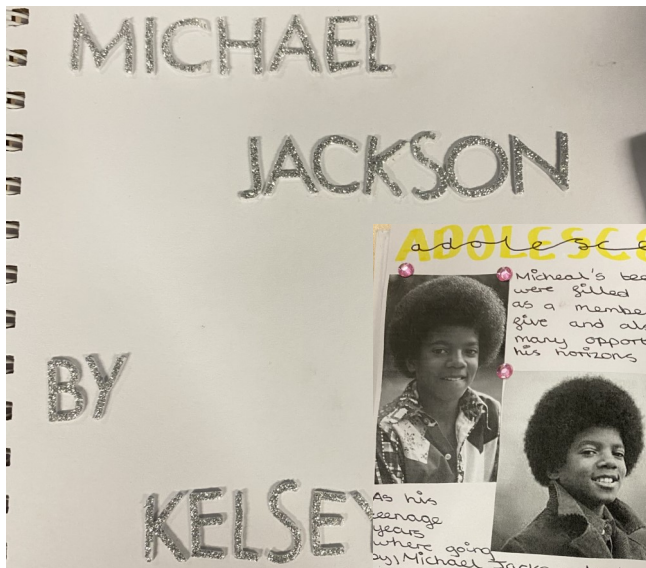 MICHAEL
JACKSON
BY
KELSEY
ADOLESCE
adolesce
Micheal's tee
were filled
as a membe
five and als
many opport
his horizons
As his
teenage
years
where going
by, Michael Jackson